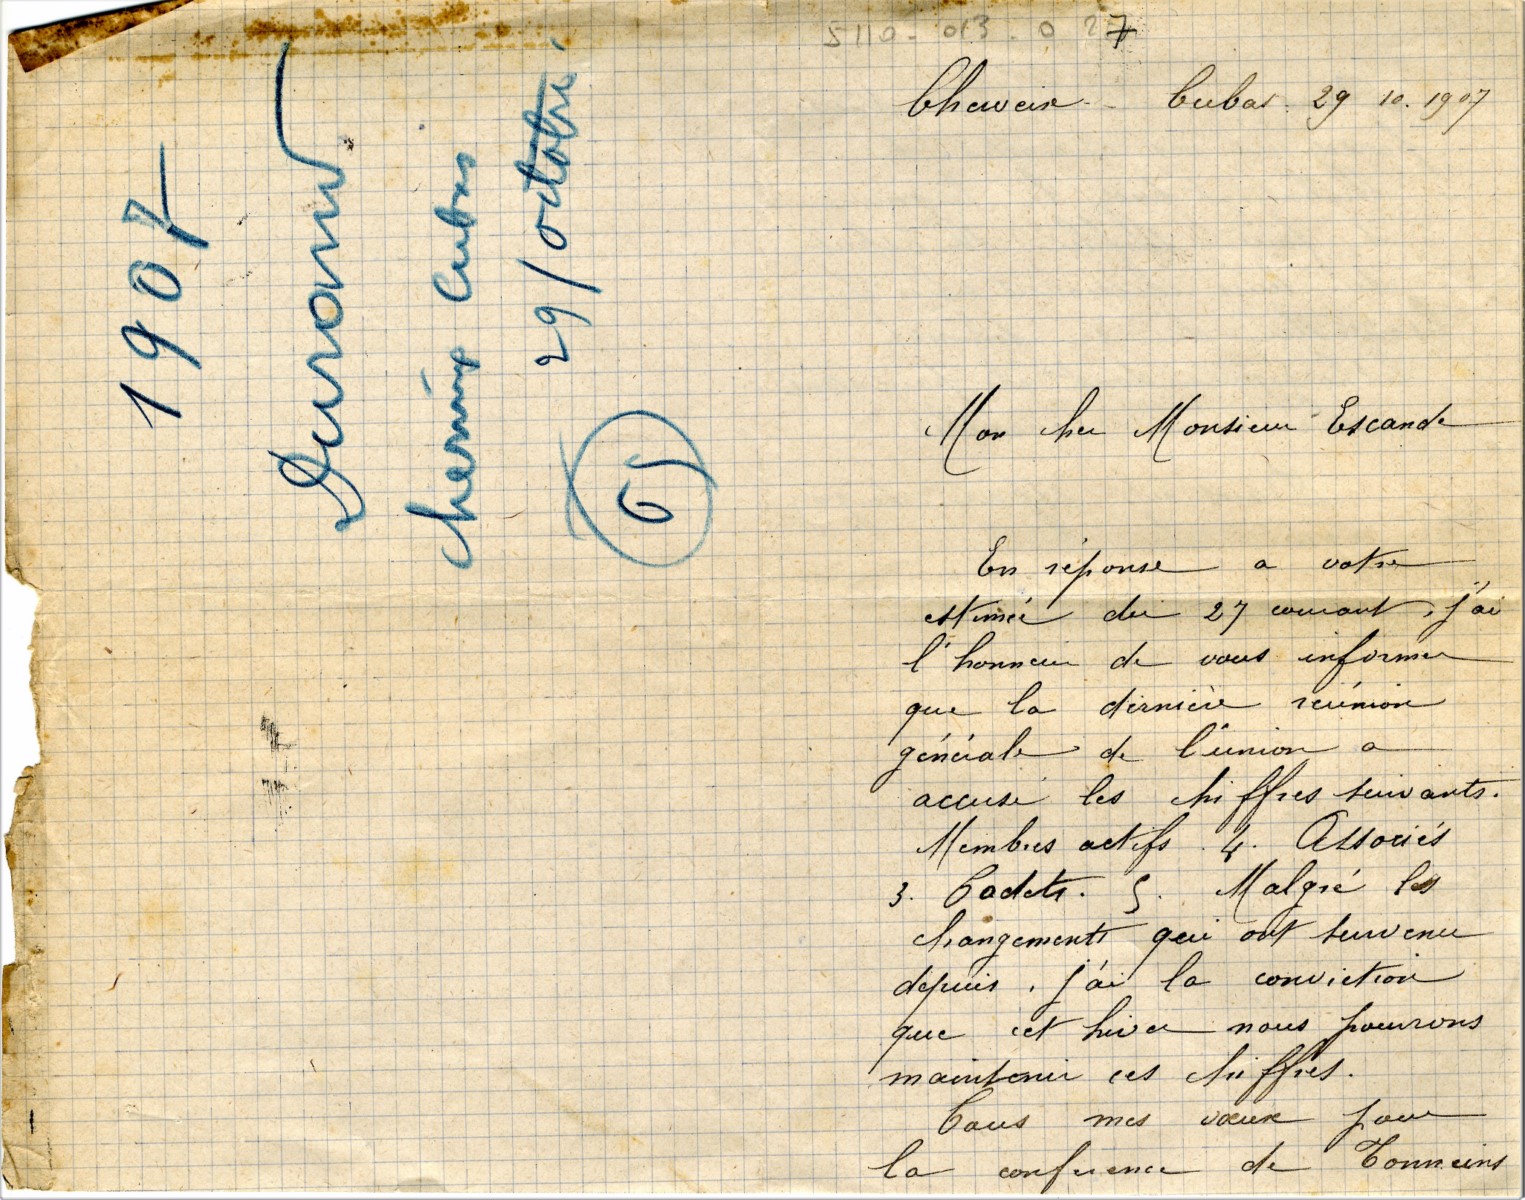 5110-013-027
1907
Durand
Cherveix Cubas
29/octobre.
Cherveix - Cubas. 29 10. 1907
Mon cher Monsieur Escande
En réponse a votre
estimée du 27 courant, j'ai
l'honneur de vous informer
que la dernière réunion
générale de l'union a
accusé les chiffres suivants.
Membres actifs. 4. Associés
3. Cadets. 5. Malgré les
changements qui ont survenu
depuis, j'ai la conviction
que cet hiver nous pourrons
maintenir ces chiffres.
Tous mes vœux pour
la conférence de Tonneins